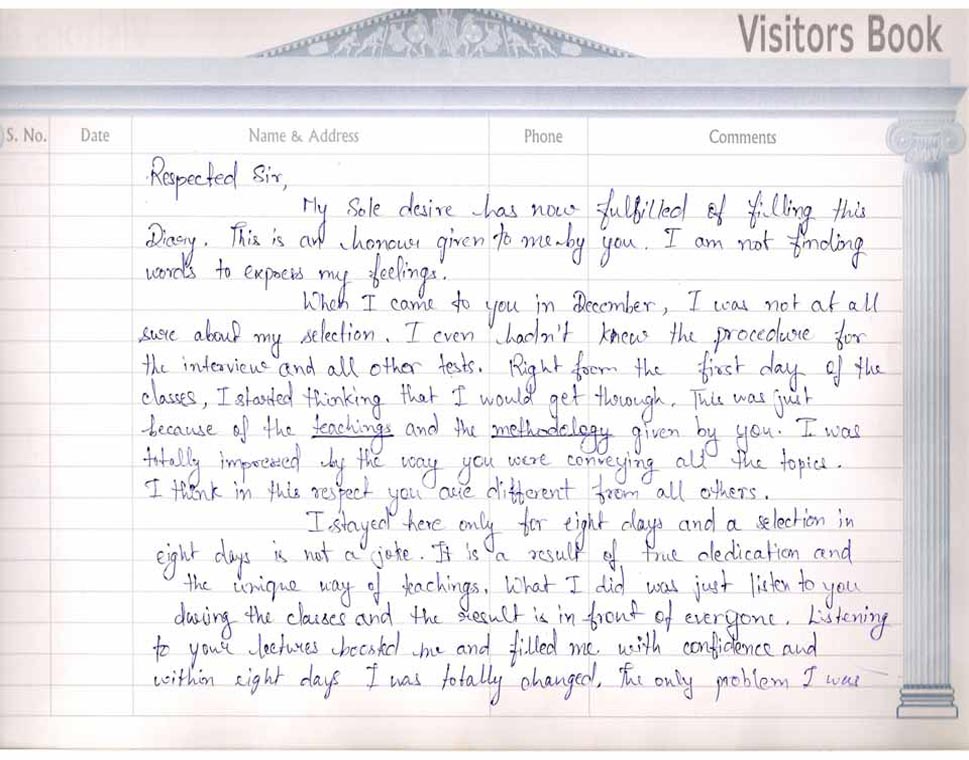 Visitors Book
S. No. Date Name & Address Phone Comments
Respected Sir,
My Sole desire has now fulfilled of filling this
Diary. This is an honour given to me by you. I am not finding
words to express my feelings.
When I came to you in December, I was not at all
sure about my selection. I even hadn't knew the procedure for
the interview and all other tests. Right from the first day of the
classes, I started thinking that I would get through. This was just
because of the teachings and the methodology given by you. I was
totally impressed by the way you were conveying all the topics.
I think in this respect you are different from all others.
I stayed here only for eight days and a selection in
eight days is not a joke. It is a result of true dedication and
the unique way of teachings. What I did was just listen to you
during the classes and the result is in front of everyone. Listening
to your lectures boosted me and filled me with confidence and
within eight days I was totally changed. The only problem I was